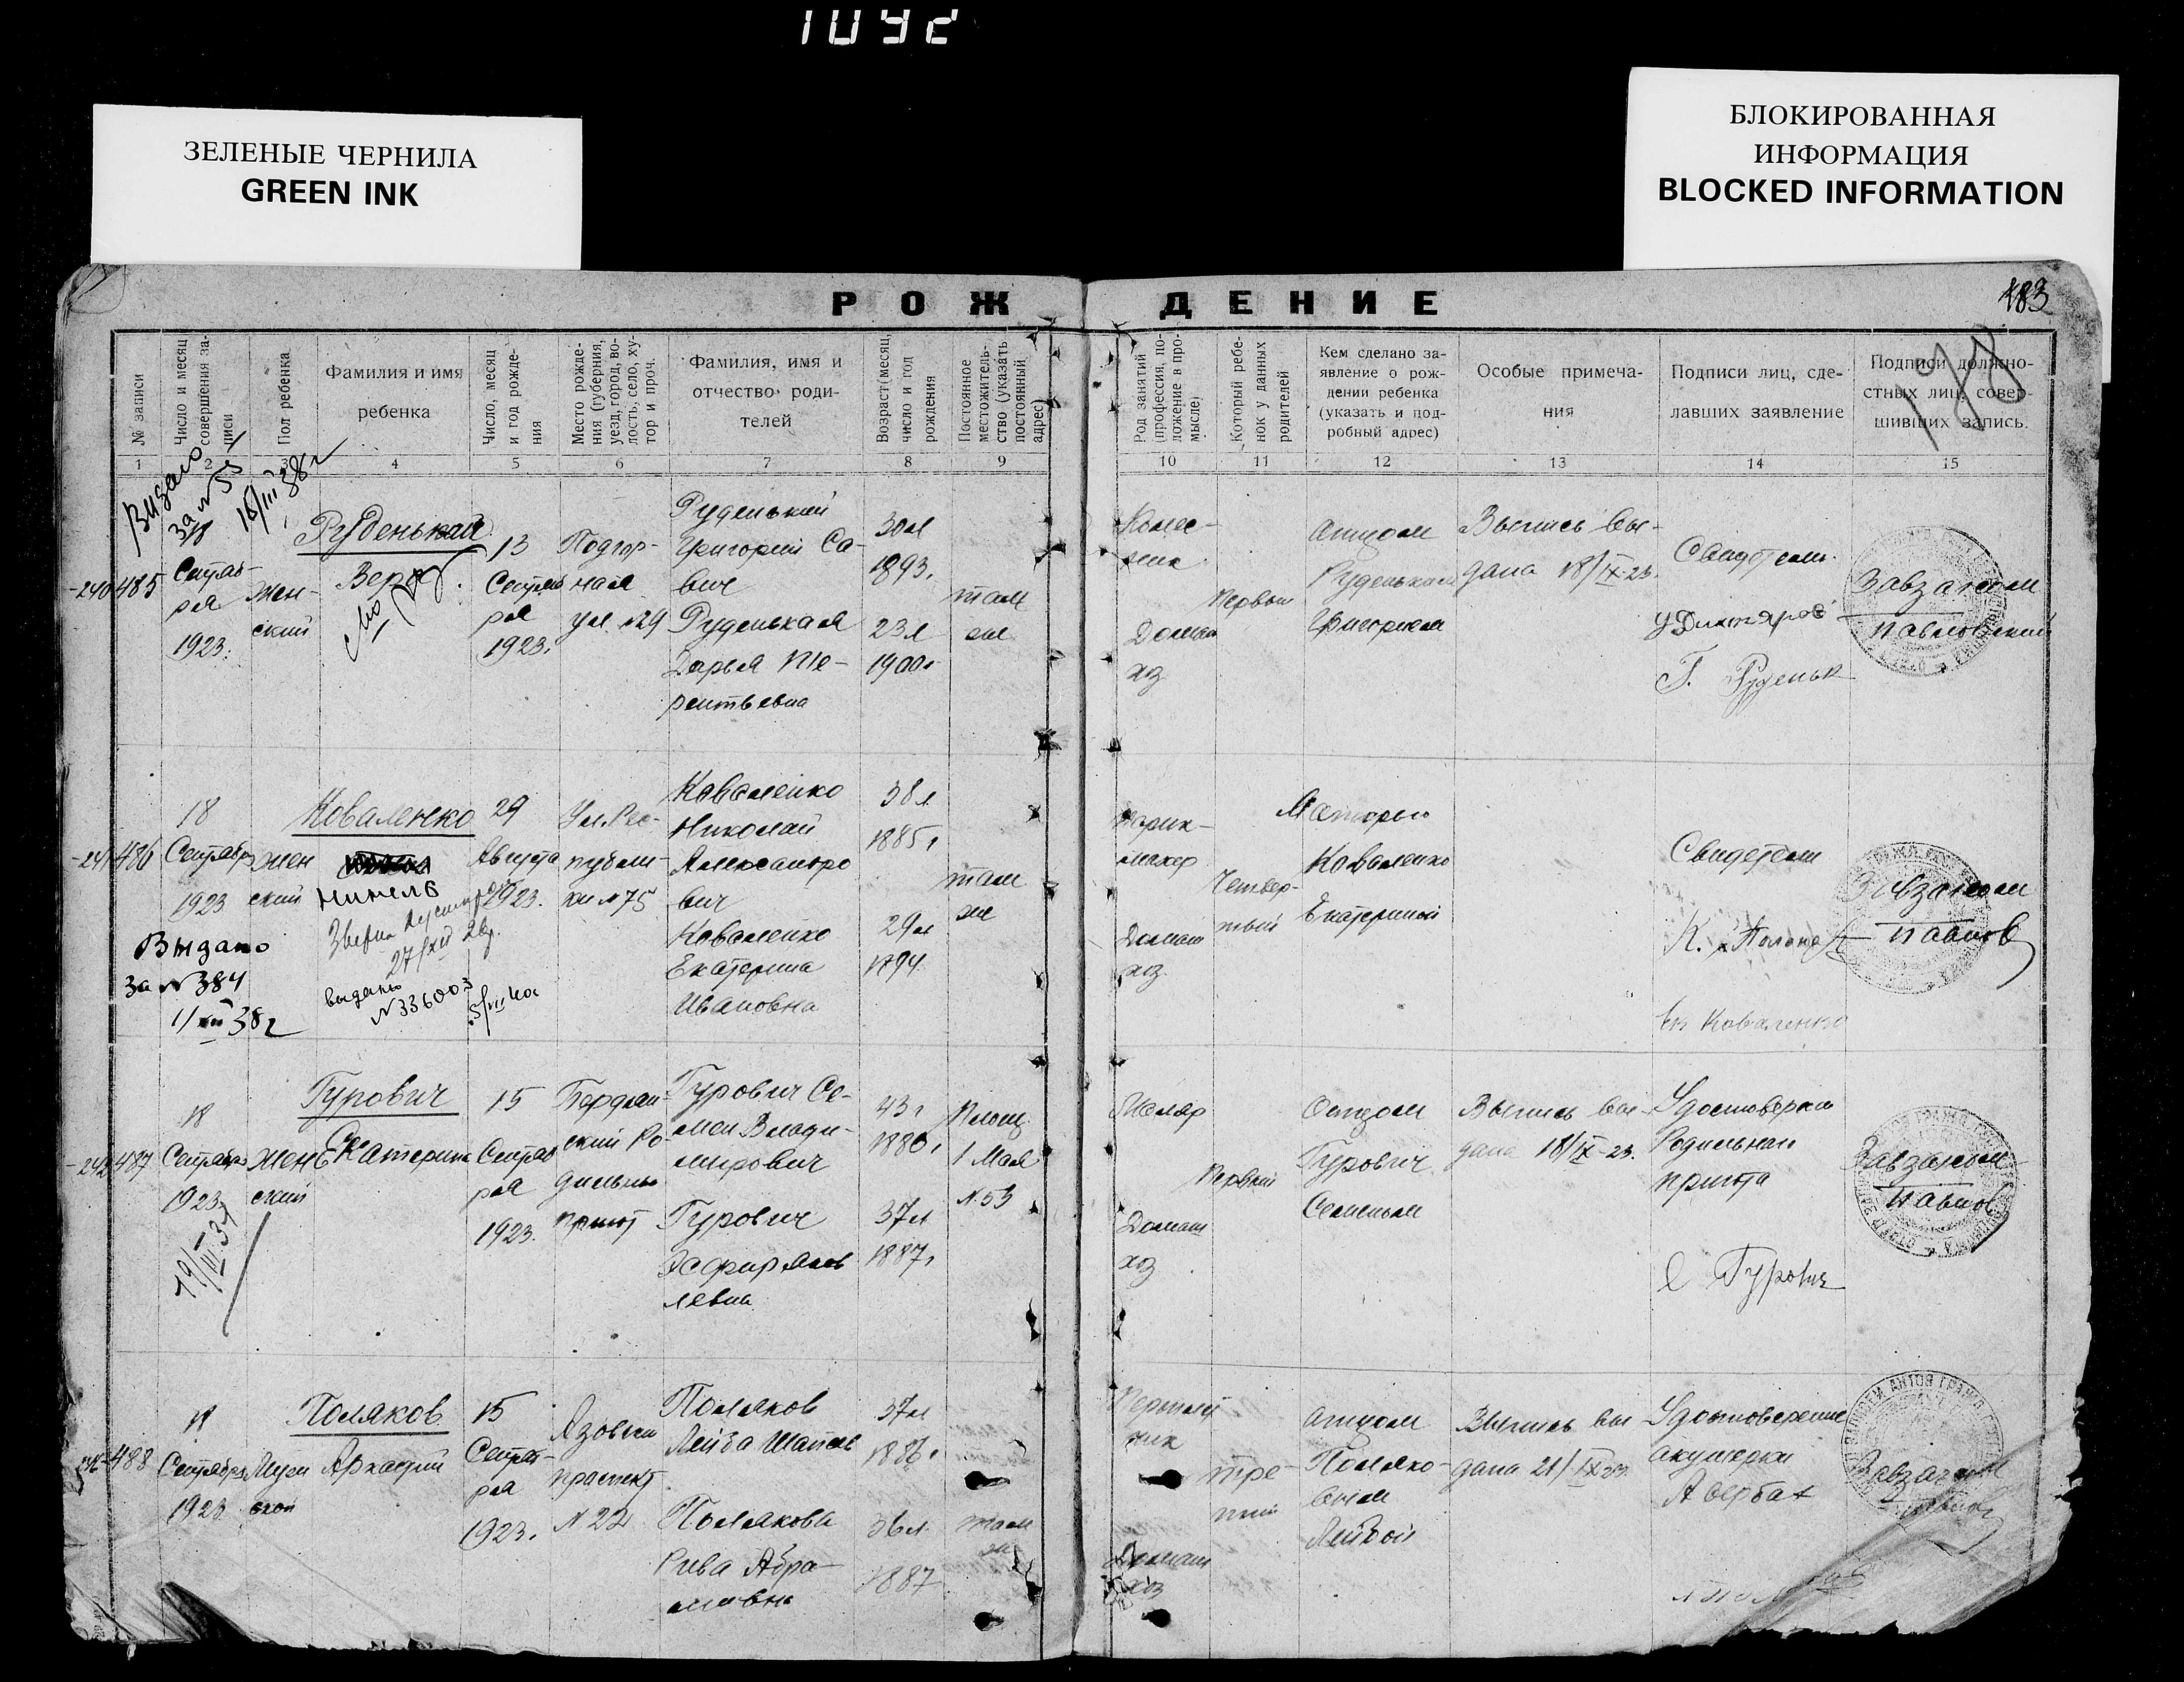 1092
ЗЕЛЕНЫЕ ЧЕРНИЛА
GREEN INK
БЛОКИРОВАННАЯ
ИНФОРМАЦИЯ
BLOCKED INFORMATION
РОЖДЕНИЕ
183
№ записи
Число и месяц
совершения за-
писи
Пол ребенка
Фамилия и имя
ребенка
Число, месяц
и год рожде-
ния
Место рожде-
ния (губерния,
уезд, город, во-
лость, село, ху-
тор и проч.
Фамилия, имя и
отчество роди-
телей
Возраст (месяц,
число и год
рождения
Постоянное
местожитель-
ство (указать
постоянный
адрес)
Род занятий
(профессия, по-
ложение в про-
мысле)
Который ребе-
нок у данных
родителей
Кем сделано за-
явление о рож-
дении ребенка
(указать и под-
робный адрес)
Особые примеча-
ния
Подписи лиц, сде-
лавших заявление
Подписи должно-
стных лиц, совер-
шивших запись.
1 2 3 4 5 6 7 8 9 10 11 12 13 14 15
Выдано
за №
16/III 38 г
485
18
Сентяб-
ря
1923.
Жен-
ский
Руденькая
Вера
13
Сентяб
ря
1923.
Подгор-
ная
ул. №29
Руденький
Григорий Са-
вич
Руденькая
Дарья Те-
рентьевна
30 л
1893.
23 л
1900 г
там
же
Колес-
ник
Домаш
хоз
Первый
Отцом
Руденьким
Григорием
Выпись вы-
дана 18/IX-23.
Свидетели.
Г. Руденьк
Завзагсом
Павловский
486
18
Сентября
1923
Жен
ский
Коваленко
Нинель
27/XII
выдано
№336003
Выдано
за №384
1/ 38 г
29
Августа
1923.
Ул. Рес-
публи-
ки №75
Коваленко
Николай
Александро
вич
Коваленко
Екатерина
Ивановна
38 л
1885 г
29 л
1894.
там
же
Парик-
махер
Домаш
хоз.
Четвер-
тый
Матерью
Коваленко
Екатериной
Свидетели
Ек Коваленко
Завзагсом
Павлов
487
18
Сентября
1923
Жен
ский
19/III 3
Гурович
Екатерина
15
Сентяб
ря
1923.
Бердян-
ский Ро-
дильный
приют
Гурович Се-
мен Влади-
мирович
Гурович
Эсфир Яков
левна
43 г
1880 г
37 л
1887 г
Площ
1 Мая
№53
Маляр
Домаш
хоз
Первый
Отцом
Гурович
Семеном
Выпись вы-
дана 18/IX-23.
Удостоверен
Родильнаго
приюта
С Гурович
Завзагсом
Павлов
488
18
Сентября
1923
Муж
ской
Поляков
Аркадий
15
Сентяб-
ря
1923.
Азовский
проспект
№22
Поляков
Лейба
Полякова
Рива Абра-
мовна
37 л
1886 г
36 л.
1887
там
же
Домаш
хоз
тре-
тий
Отцом
Поляко-
вым
Лейбой
Выпись вы
дана 21/IX 23.
Удостоверение
акушерки
Авербах
Завзагсом
Павлов